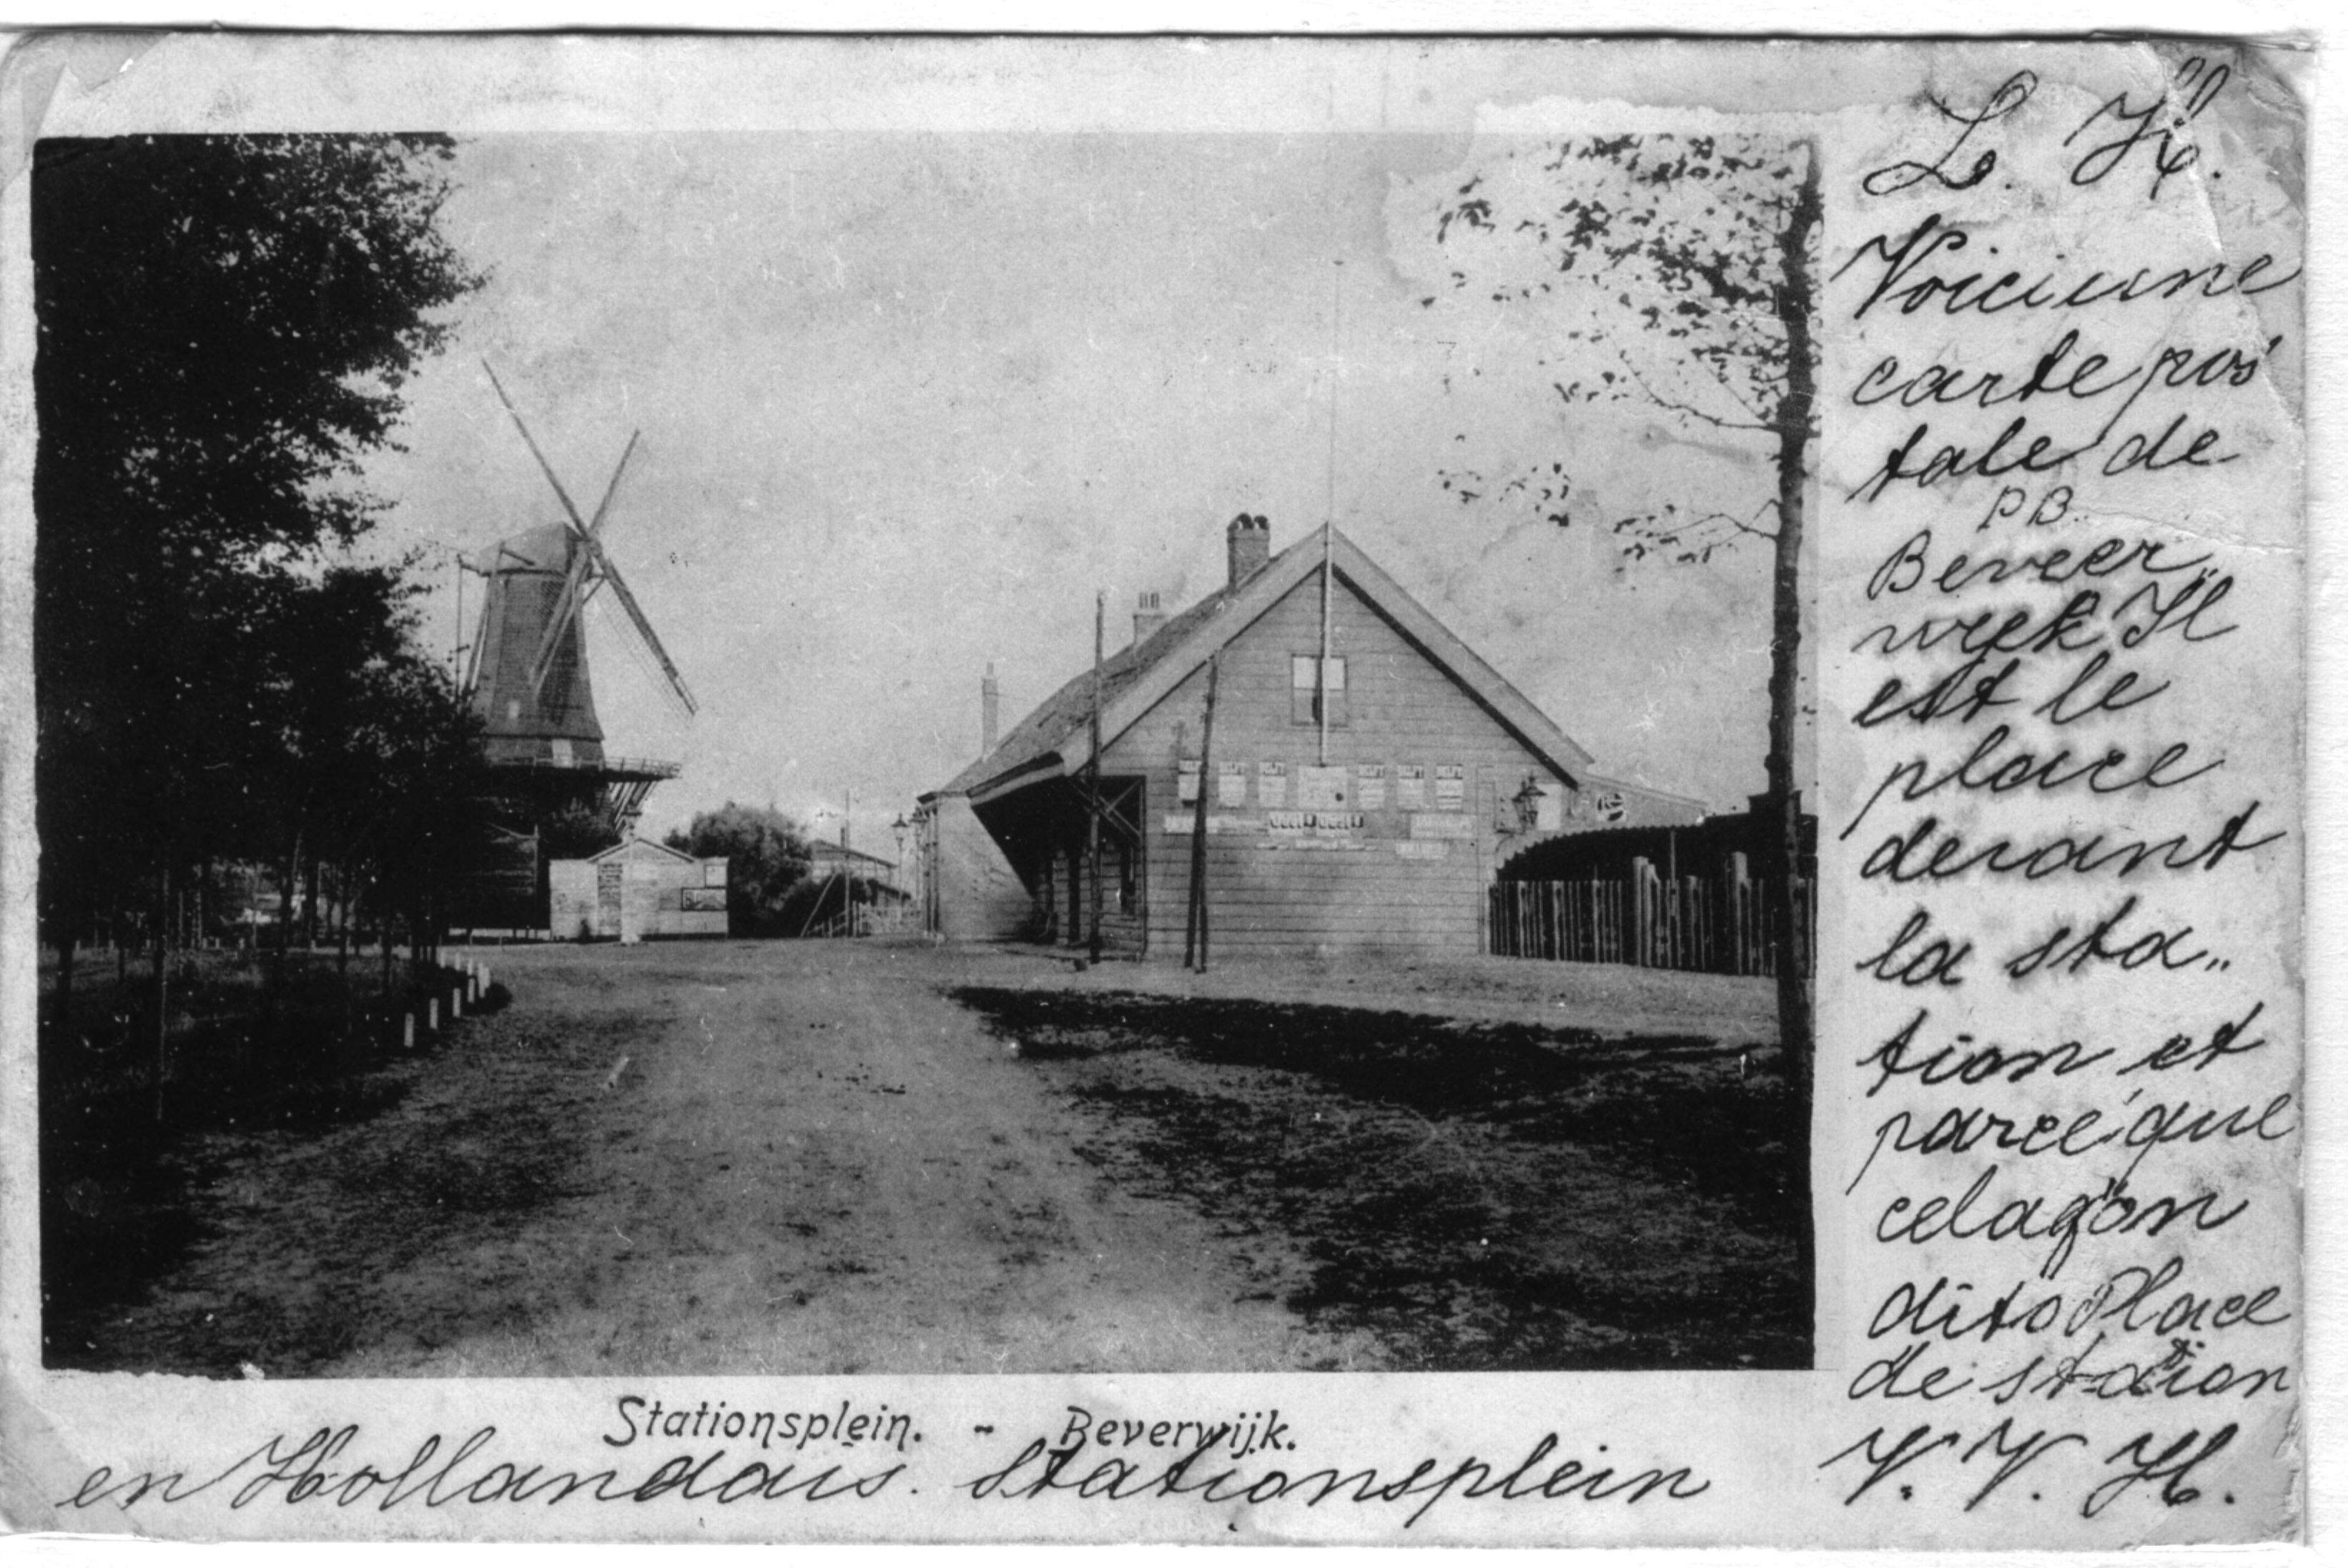 L. H.
Voici une
carte pos
tale de
P B.
Beveer„
wijk Il
est le
place
devant
la sta„
tion et
parce que
cela q'on
dito Place
de station
V. V. H.
Stationsplein. - Beverwijk.
en Hollandais. Stationsplein